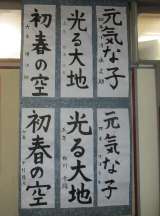 元気な子
光る大地
初春の空
元気な子
光る大地
初春の空